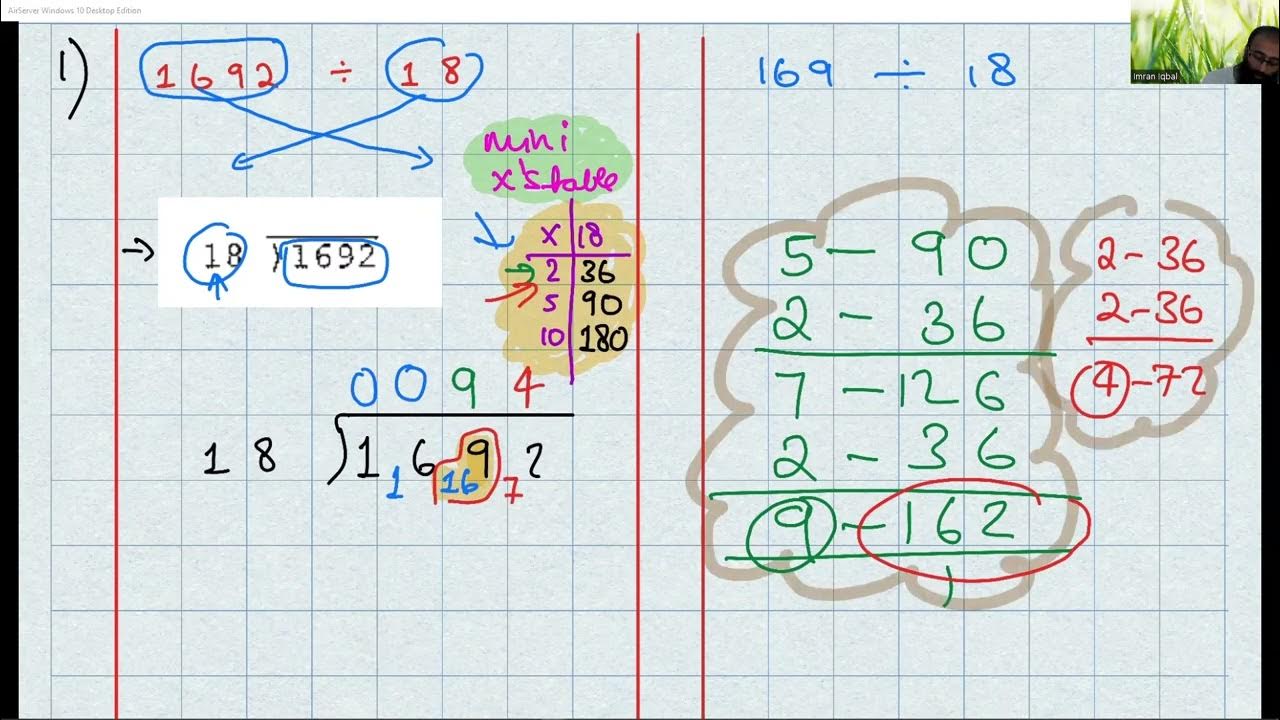 AirServer Windows 10 Desktop Edition
1) 1692 ÷ 18
169 ÷ 18
Imran Iqbal
mini
x's table
→ 18 )1692
x | 18
2 | 36
5 | 90
10 | 180
0 0 9 4
18 )1 1 6 16 9 7 2
5 - 90
2 - 36
7 - 126
2 - 36
9 - 162
1
2 - 36
2 - 36
4 - 72